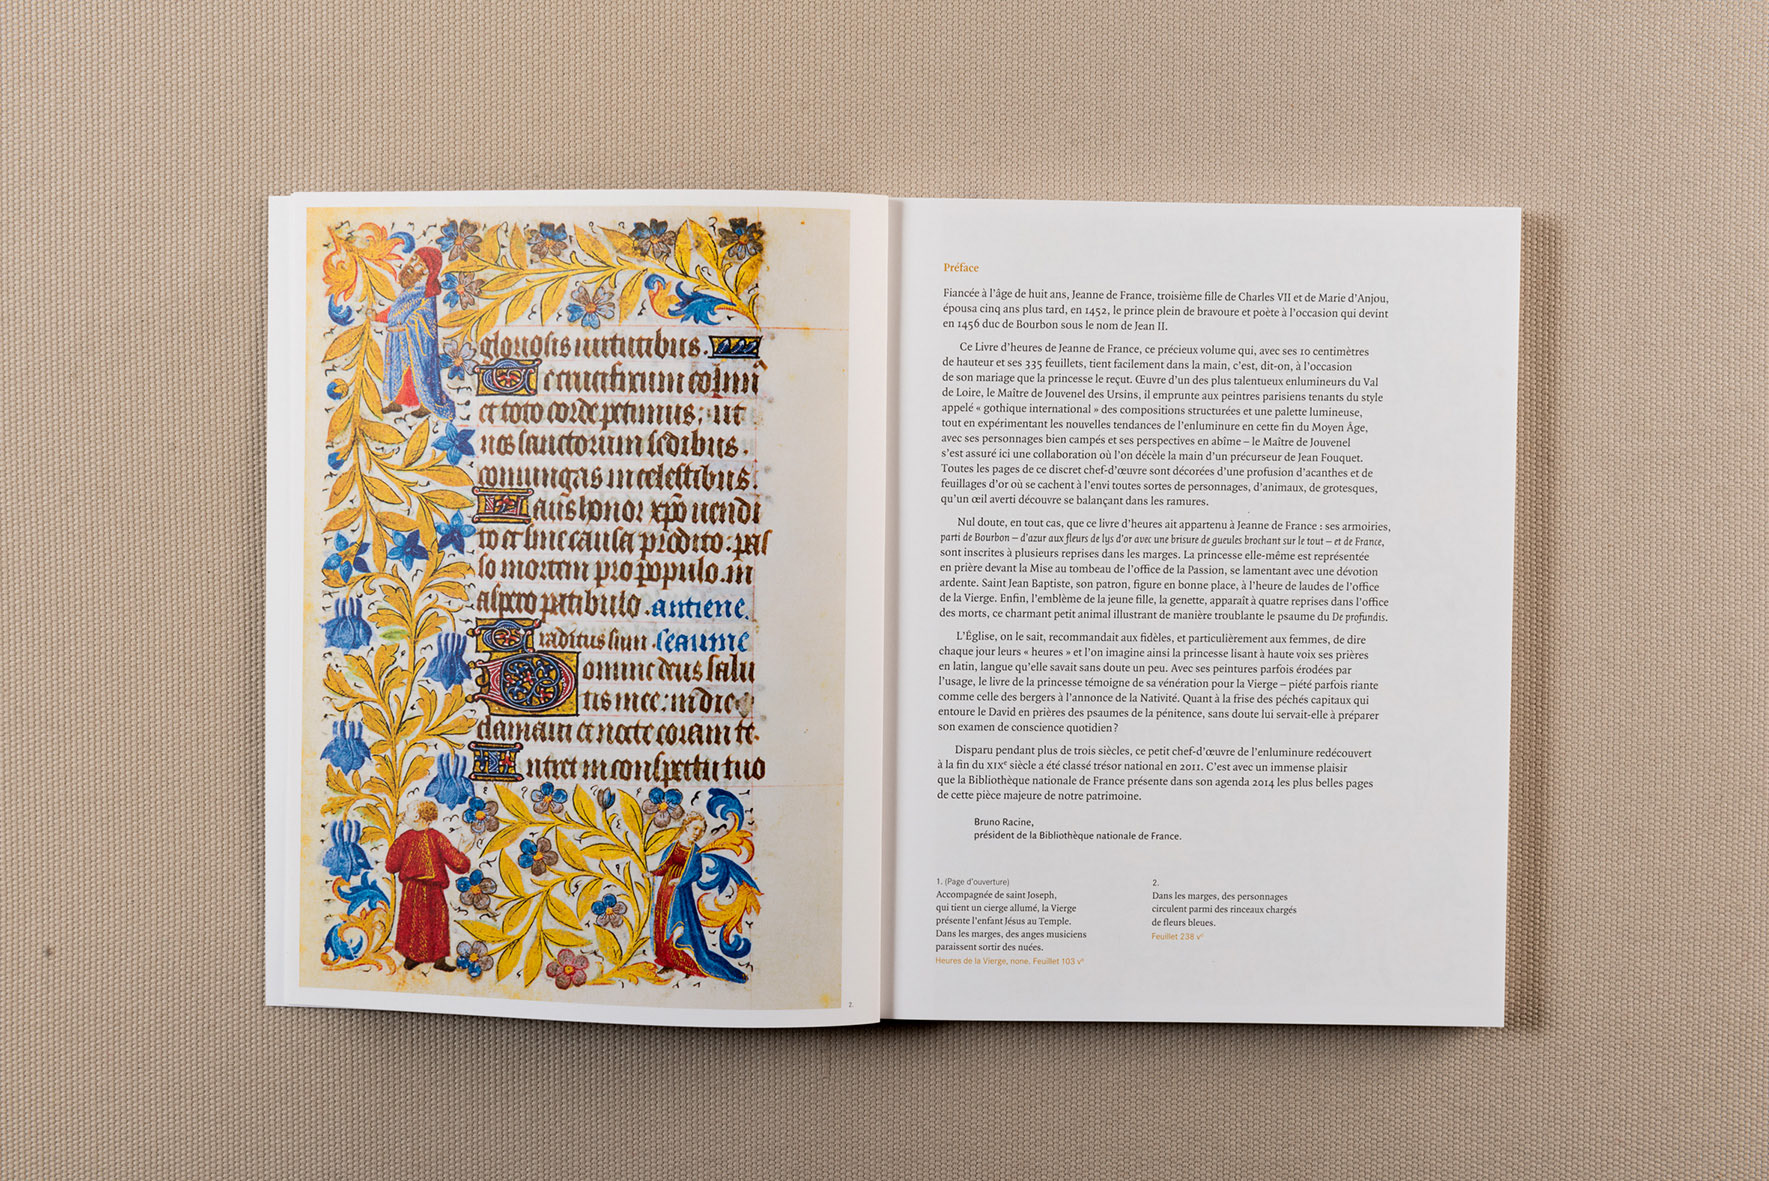 gloriosis virtutibus.
Te crucifixum colimus
et toto corde petimus: ut
nos sanctorum sedibus.
coniungas in celestibus.
Laus honor xpo vendi
to et sine causa prodito. pas
so mortem pro populo. in
aspero patibulo. antiene.
Traditus sum. seaume
Domine deus salu
tis mee: in die
clamavi et nocte coram te.
Intret in conspectu tuo
2.
Préface
Fiancée à l'âge de huit ans, Jeanne de France, troisième fille de Charles VII et de Marie d'Anjou,
épousa cinq ans plus tard, en 1452, le prince plein de bravoure et poète à l'occasion qui devint
en 1456 duc de Bourbon sous le nom de Jean II.
Ce Livre d'heures de Jeanne de France, ce précieux volume qui, avec ses 10 centimètres
de hauteur et ses 335 feuillets, tient facilement dans la main, c'est, dit-on, à l'occasion
de son mariage que la princesse le reçut. Œuvre d'un des plus talentueux enlumineurs du Val
de Loire, le Maître de Jouvenel des Ursins, il emprunte aux peintres parisiens tenants du style
appelé « gothique international » des compositions structurées et une palette lumineuse,
tout en expérimentant les nouvelles tendances de l'enluminure en cette fin du Moyen Âge,
avec ses personnages bien campés et ses perspectives en abîme – le Maître de Jouvenel
s'est assuré ici une collaboration où l'on décèle la main d'un précurseur de Jean Fouquet.
Toutes les pages de ce discret chef-d'œuvre sont décorées d'une profusion d'acanthes et de
feuillages d'or où se cachent à l'envi toutes sortes de personnages, d'animaux, de grotesques,
qu'un œil averti découvre se balançant dans les ramures.
Nul doute, en tout cas, que ce livre d'heures ait appartenu à Jeanne de France : ses armoiries,
parti de Bourbon – d'azur aux fleurs de lys d'or avec une brisure de gueules brochant sur le tout – et de France,
sont inscrites à plusieurs reprises dans les marges. La princesse elle-même est représentée
en prière devant la Mise au tombeau de l'office de la Passion, se lamentant avec une dévotion
ardente. Saint Jean Baptiste, son patron, figure en bonne place, à l'heure de laudes de l'office
de la Vierge. Enfin, l'emblème de la jeune fille, la genette, apparaît à quatre reprises dans l'office
des morts, ce charmant petit animal illustrant de manière troublante le psaume du De profundis.
L'Église, on le sait, recommandait aux fidèles, et particulièrement aux femmes, de dire
chaque jour leurs « heures » et l'on imagine ainsi la princesse lisant à haute voix ses prières
en latin, langue qu'elle savait sans doute un peu. Avec ses peintures parfois érodées par
l'usage, le livre de la princesse témoigne de sa vénération pour la Vierge – piété parfois riante
comme celle des bergers à l'annonce de la Nativité. Quant à la frise des péchés capitaux qui
entoure le David en prières des psaumes de la pénitence, sans doute lui servait-elle à préparer
son examen de conscience quotidien ?
Disparu pendant plus de trois siècles, ce petit chef-d'œuvre de l'enluminure redécouvert
à la fin du XIXe siècle a été classé trésor national en 2011. C'est avec un immense plaisir
que la Bibliothèque nationale de France présente dans son agenda 2014 les plus belles pages
de cette pièce majeure de notre patrimoine.
Bruno Racine,
président de la Bibliothèque nationale de France.
1. (Page d'ouverture)
Accompagnée de saint Joseph,
qui tient un cierge allumé, la Vierge
présente l'enfant Jésus au Temple.
Dans les marges, des anges musiciens
paraissent sortir des nuées.
Heures de la Vierge, none. Feuillet 103 v°
2.
Dans les marges, des personnages
circulent parmi des rinceaux chargés
de fleurs bleues.
Feuillet 238 v°